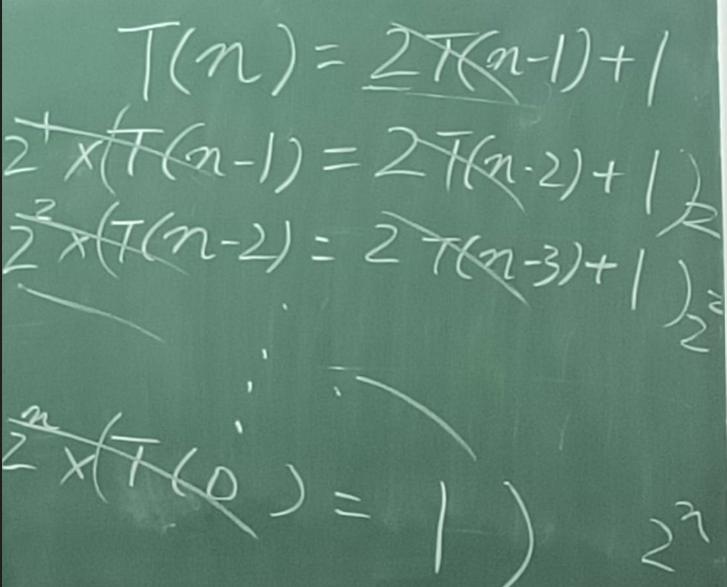 T(n) = 2T(n-1)+1
2¹×(T(n-1) = 2T(n-2)+1)2
2²×(T(n-2) = 2T(n-3)+1)2²
⋮
2ⁿ×(T(0) = 1) 2ⁿ